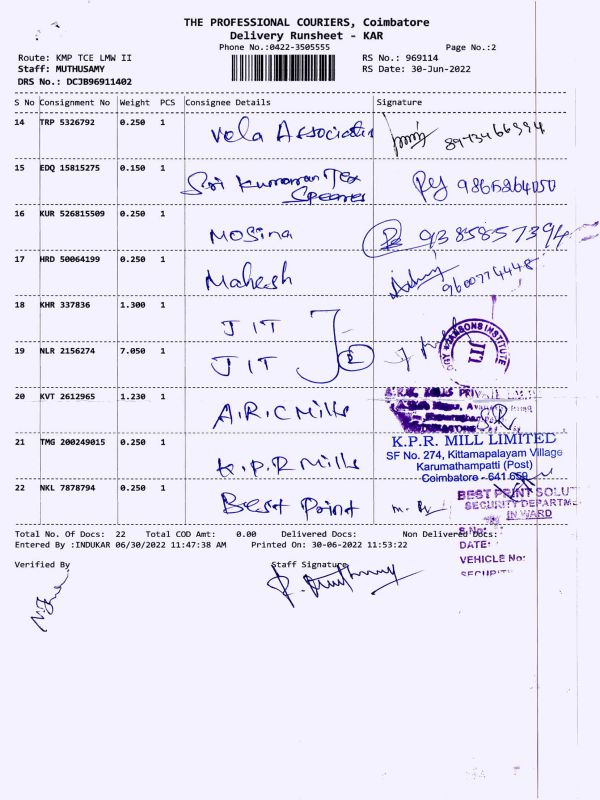 THE PROFESSIONAL COURIERS, Coimbatore
Delivery Runsheet - KAR
Phone No.:0422-3505555 Page No.:2
Route: KMP TCE LMW II RS No.: 969114
Staff: MUTHUSAMY RS Date: 30-Jun-2022
DRS No.: DCJB96911402
S No Consignment No Weight PCS Consignee Details Signature
14 TRP 5326792 0.250 1 Vela Associates
15 EDQ 15815275 0.150 1 Sri Kumaran Tex
16 KUR 526815509 0.250 1 Mosina 9385857394
17 HRD 50064199 0.250 1 Mahesh 9600774448
18 KHR 337836 1.300 1 JIT
19 NLR 2156274 7.050 1 JIT INSTITUTE JIT
20 KVT 2612965 1.230 1 A.R.C Mills
21 TMG 200249015 0.250 1 K.P.R Mills
K.P.R. MILL LIMITED
SF No. 274, Kittampalayam Village
Karumathampatti (Post)
Coimbatore - 641 659
22 NKL 7878794 0.250 1 Best Point
BEST PRINT SOLUT
SECURITY DEPARTME
IN WARD
Total No. Of Docs: 22 Total COD Amt: 0.00 Delivered Docs: Non Delivered Docs:
S.No:
DATE:
Entered By :INDUKAR 06/30/2022 11:47:38 AM Printed On: 30-06-2022 11:53:22
VEHICLE No:
Verified By Staff Signature